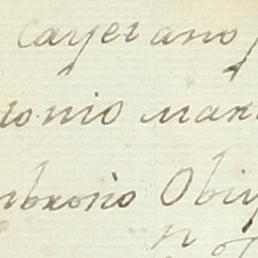 cayetano
tonio mar
mbrosio Obi